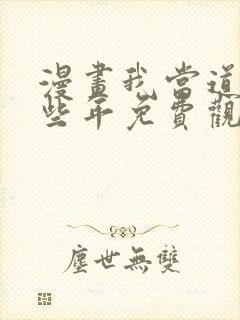 漫畫我當道
些年免費觀
塵世無雙